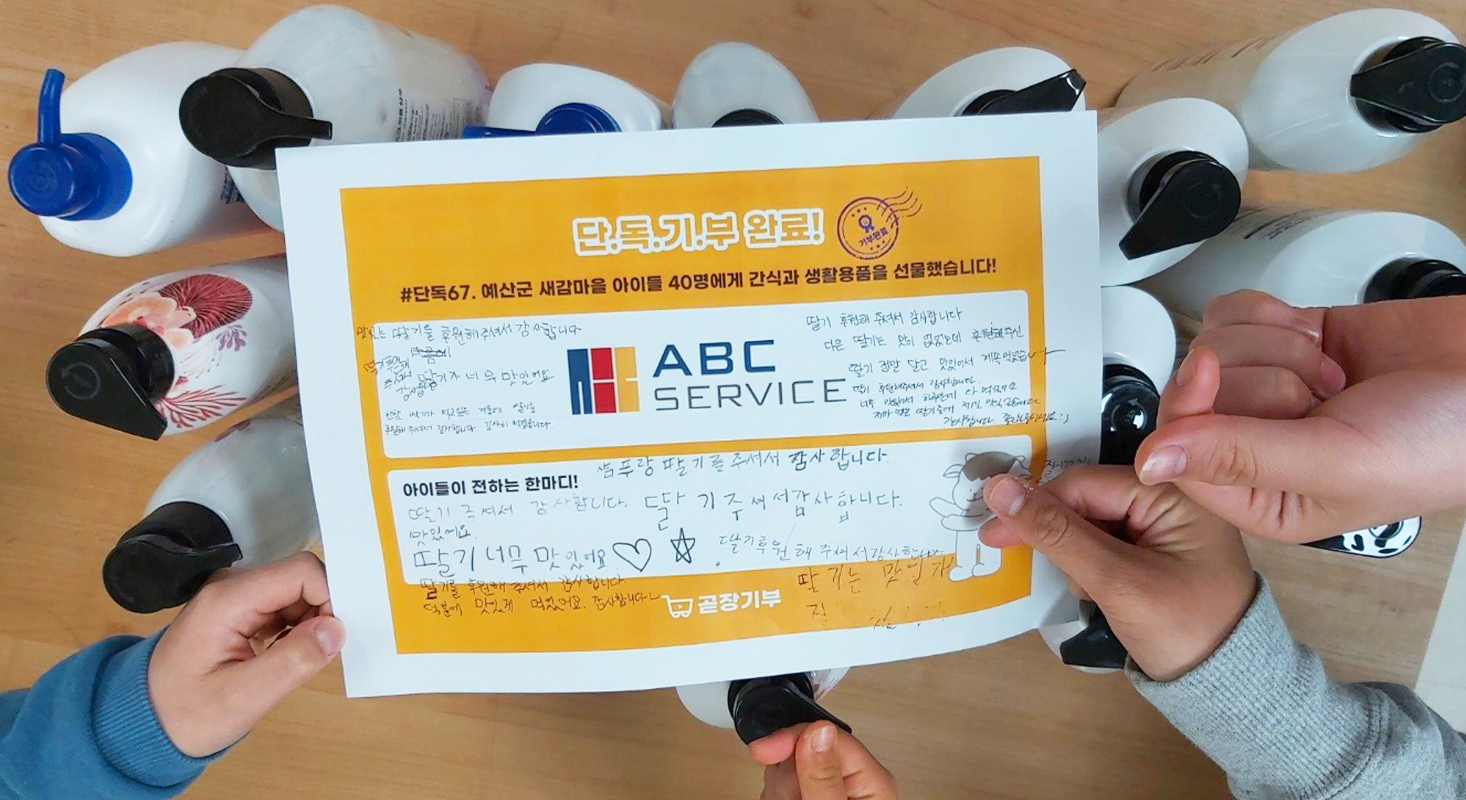 단.독.기.부 완료!
기부완료
#단독67. 예산군 새감마을 아이들 40명에게 간식과 생활용품을 선물했습니다!
맛있는 딸기를 후원해 주셔서 감사합니다
딸기가 너무 맛있어요
후원해주셔서 감사합니다. 감사히 먹겠습니다
ABC
SERVICE
딸기 후원해 주셔서 감사합니다
다른 딸기는 맛이 없었는데 후원해주신
딸기 정말 달고 맛있어서 계속 먹었습니다
딸기 후원해주셔서 감사합니다
너무 맛있어서 하루만에 다 먹었어요
제가 먹은 딸기중에 제일 맛있었습니다.
감사합니다
샴푸랑 딸기를 주셔서 감사합니다.
아이들이 전하는 한마디!
딸기 주셔서 감사합니다.
맛있어요.
딸기주셔서감사합니다.
딸기 너무 맛있어요
딸기후원해 주셔서감사합니다
딸기를 후원해 주셔서 감사합니다
덕분에 맛있게 먹었어요. 감사합니다
딸기는 맛있
곧장기부